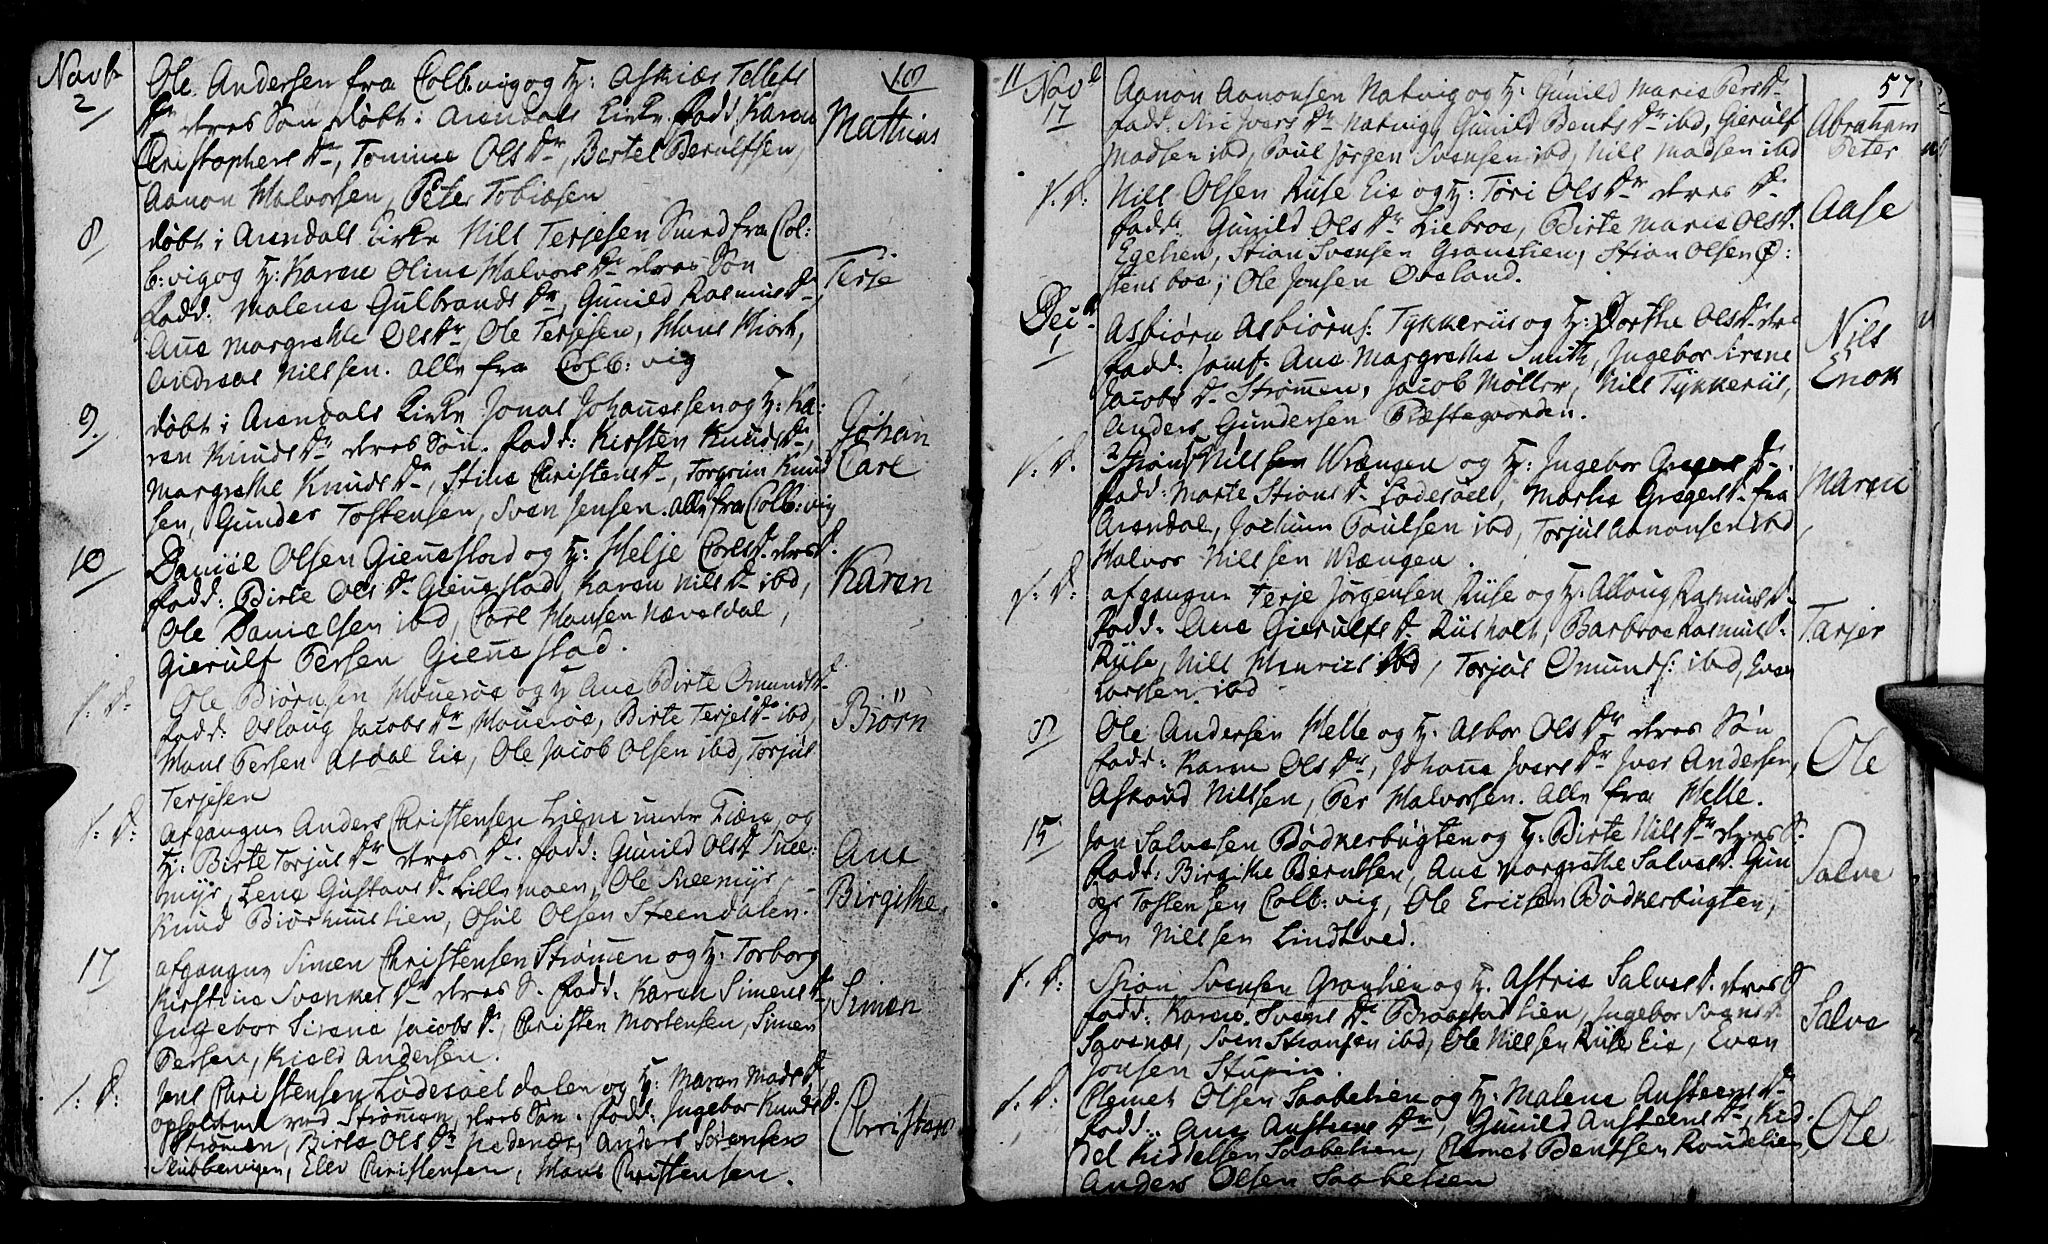 Novb
2
Ole Andersen fra Colb:vig og H: Asthiæs Tellefs
Dr deres Søn døbt i Arendals Kirke. fadd: Karen
Christophers Dr, Tomine Ols Dr, Bertel Berulfsen,
Aanon Halvorsen, Peter Tobiasen
Mathias
8
døbt i Arendals Kirke Nills Terjesen Smed fra Col:
b:vig og H: Karen Oline Halvors Dr deres Søn
fadd: Malene Gulbrands Dr, Gunild Rasmus D.
Ane Margrethe Ols Dr, Ole Terjesen, Hans Hiort,
Andreas Nillsen. alle fra Colb:vig
Terje
9.
døbt i Arendals Kirke Jonas Johannessen og H: Ka:
ren Knuds Dr deres Søn. fadd: Kirsten Knuds Dr,
Margrethe Knuds Dr, Stine Christens Dr, Torgrim Knud
sen, Gunder Tostensen, Sven Jensen. alle fra Colb:vig
Johan
Carl
10
Daniel Olsen Gienestad og H: Helje Carls D. deres D.
fadd: Birte Ols Dr Gienestad, Karen Nils Dr ibd,
Ole Danielsen ibd, Carl Hansen Nævesdal,
Gierulf Persen Gienestad.
Karen
s: D:
Ole Biørnsen Houerøe og H: Ane Birte Omunds D.
fadd: Oslaug Jacobs Dr, Houerøe, Birte Terjes Dr ibd,
Hans Persen Asdal Eie, Ole Jacob Olsen ibd, Torjus
Terjesen
Biørn
s: D:
afgangne Anders Christensen Liene under Fiære og
H: Birte Torjus Dr deres Dr. fadd: Gunild Ols D. Snee:
myr, Lene Gustavs D. Lille moen, Ole Sneemyr
Knud Biørknuslien, Osul Olsen Steendalen.
Ane
Birgithe
17
afgangne Simen Christensen Strømmen og H: Torborg
Kirstine Svenkes Dr deres S. fadd. Karen Simens Dr
Ingebor Sirene Jacobs Dr, Christen Mortensen, Simen
Persen, Kield Andersen.
Simen
s: D:
Jens Christensen Lødesøel dalen og H: Maren Mads D.
opholdend ved Strømmen, deres Søn. fadd: Ingebor Knuds D.
Strømmen, Birte Ols Dr Nedenæs, Anders Sørensen
Skibbervigen, Elev Christensen, Hans Christensen.
Christen
11
Novb
17
57
Aanon Aanonsen Natvig og H: Gunild Marie Pers D.
fadd: Siri Ivers Dr Natvig, Gunild Bents Dr ibd, Gierulf
Madsen ibd, Poul Jørgen Svensen ibd, Nills Madsen ibd
Abraham
Peter
s: D:
Nills Olsen Riise Eie og H: Tori Ols Dr deres D.
fadd: Gunild Ols Dr Liebroe, Birte Marie Ols D.
Egelien, Stian Svensen Granelien, Stian Olsen Ø:
stensboe, Ole Jonsen Øveland.
Aase
Decb
1
Asbiørn Asbiørns: Tykkeriis og H: Dorthe Ols D. deres
fadd: Jomf. Ane Margrethe Smith, Ingebor Sirene
Jacobs D. Strømen, Jacob Møller, Nills Tykkeriis,
Anders Gundersen Præstegaarden.
Nils
Enok
s: D.
Nillsen Wrængen og H: Ingebor Gregers D.
fadd: Marte Stians D. Lødesøel, Marthe Gregers D. fra
Arendal, Jochum Poulsen ibd, Torjus Aanonsen ibd
Halvor Nillsen Wrængen.
Maren
s: D:
afgangne Terje Jørgensen Riise og H: Alloug Rasmus D.
fadd: Ane Gierulfs D. Riisholt, Barbroe Rasmus D.
Riise, Nills Henrics ibd, Torjus Omunds: ibd, Even
Larssen ibd.
Terjer
8
Ole Andersen Helle og H. Asbor Ols Dr deres Søn
fadd: Karen Ols Dr, Johane Ivers Dr Iver Andersen,
Askoud Nillsen, Per Halvorsen. alle fra Helle.
Ole
15
Jon Salvesen Bødkerbugten og H: Birte Nils Dr deres S.
fadd: Birgithe Berntsen, Ane Margrethe Salves D. Gun
der Tostensen Colb:vig, Ole Ericsen Bødkerbugten,
Jon Nillsen Lindtved.
Salve
s: D:
Stian Svensen Granlien og H. Astrie Salves D. deres S
fadd: Karen Svens Dr Braastadlien, Ingebor Svens D.
Savenæs, Sven Stiansen ibd, Ole Nillsen Riise Eie, Even
Jonsen Stupin.
Salve
s: D:
Clemet Olsen Saabelien og H: Malene Austeens D.
fadd: Ane Austeens Dr, Gunild Austeens Dr, Kid
del Kiddelsen Saabelien, Clemet Bentsen Roudelien,
Anders Olsen Saabelien
Ole